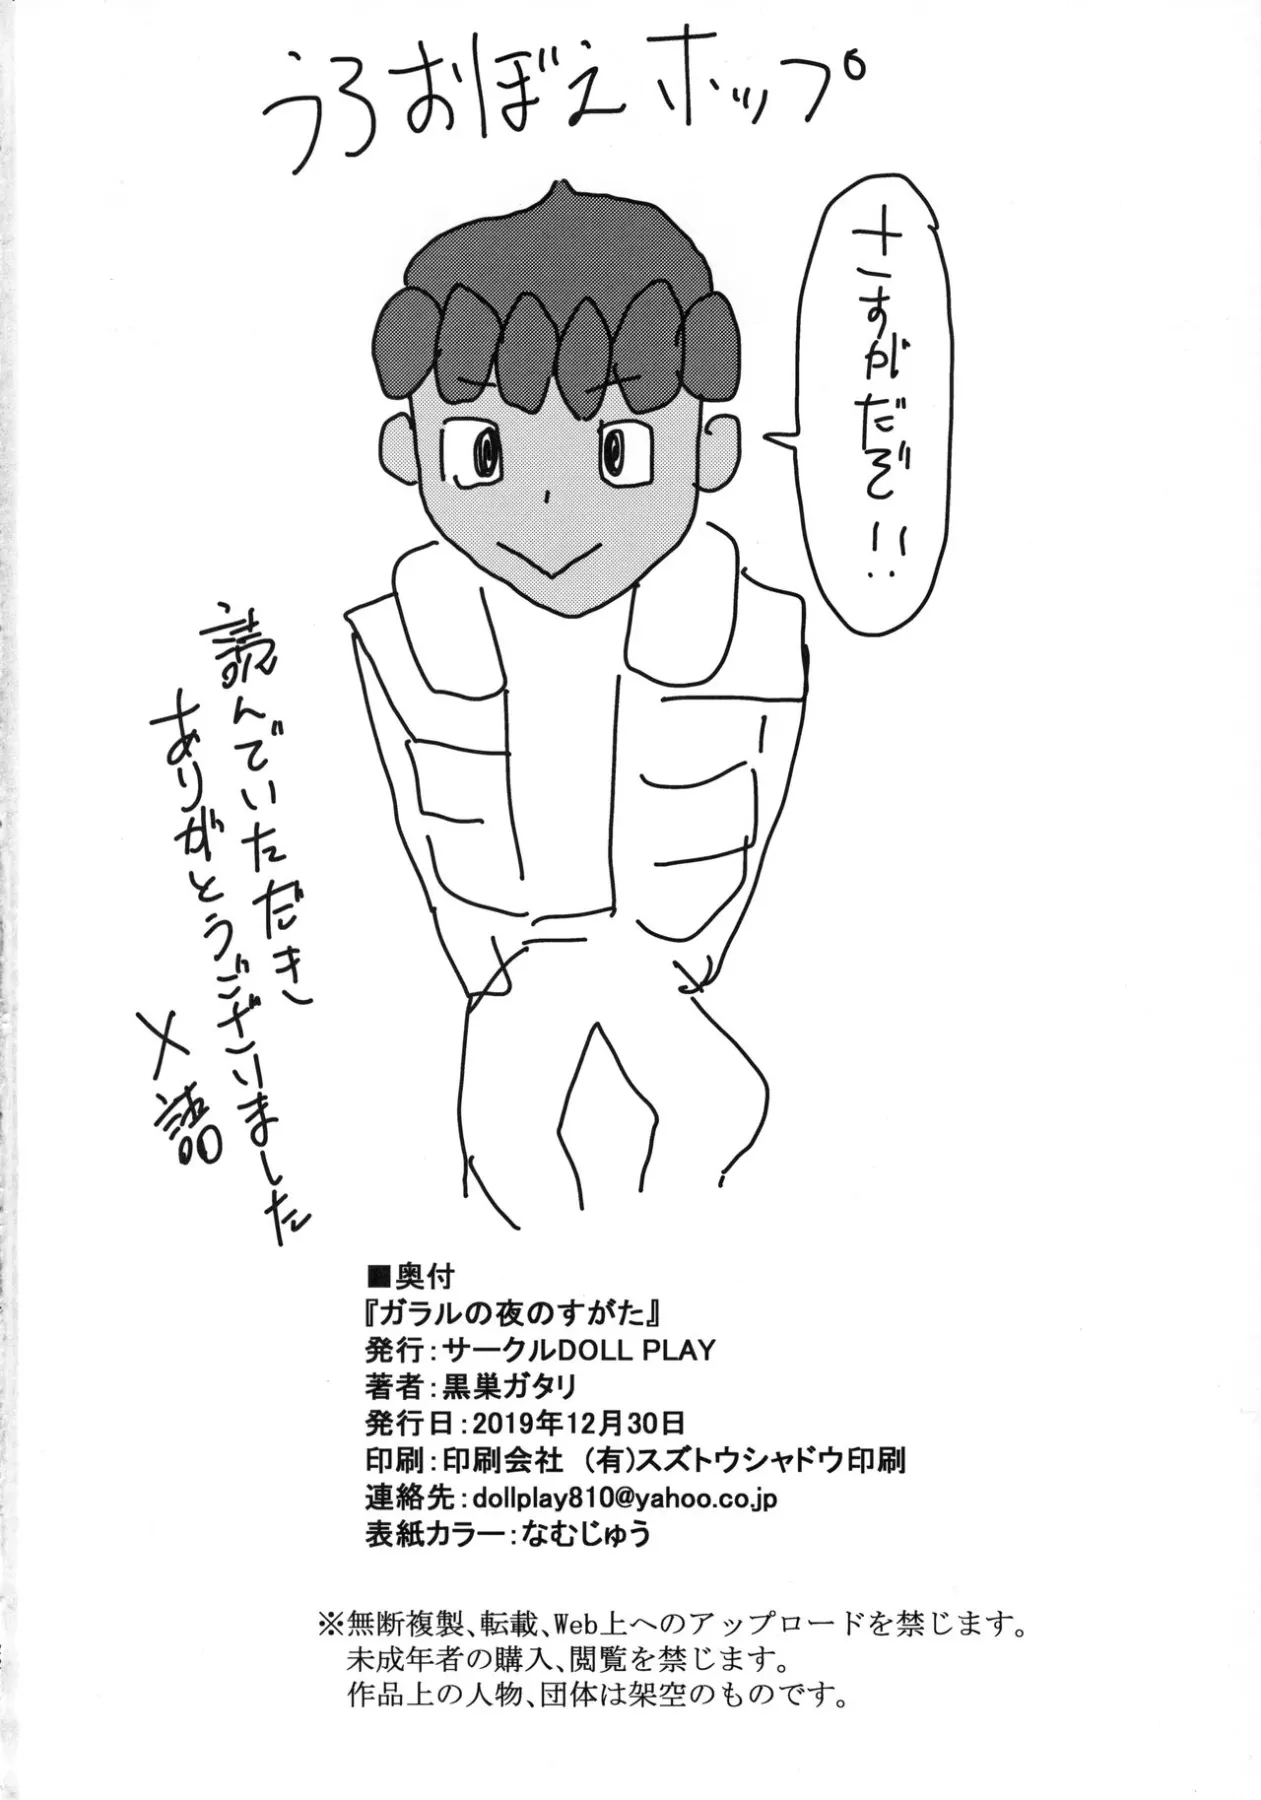 うろおぼえホップ
さすがだぞ!!
読んでいただき
ありがとうございました
〆
■奥付
『ガラルの夜のすがた』
発行:サークルDOLL PLAY
著者:黒巣ガタリ
発行日:2019年12月30日
印刷:印刷会社 (有)スズトウシャドウ印刷
連絡先:dollplay810@yahoo.co.jp
表紙カラー:なむじゅう
※無断複製、転載、Web上へのアップロードを禁じます。
未成年者の購入、閲覧を禁じます。
作品上の人物、団体は架空のものです。